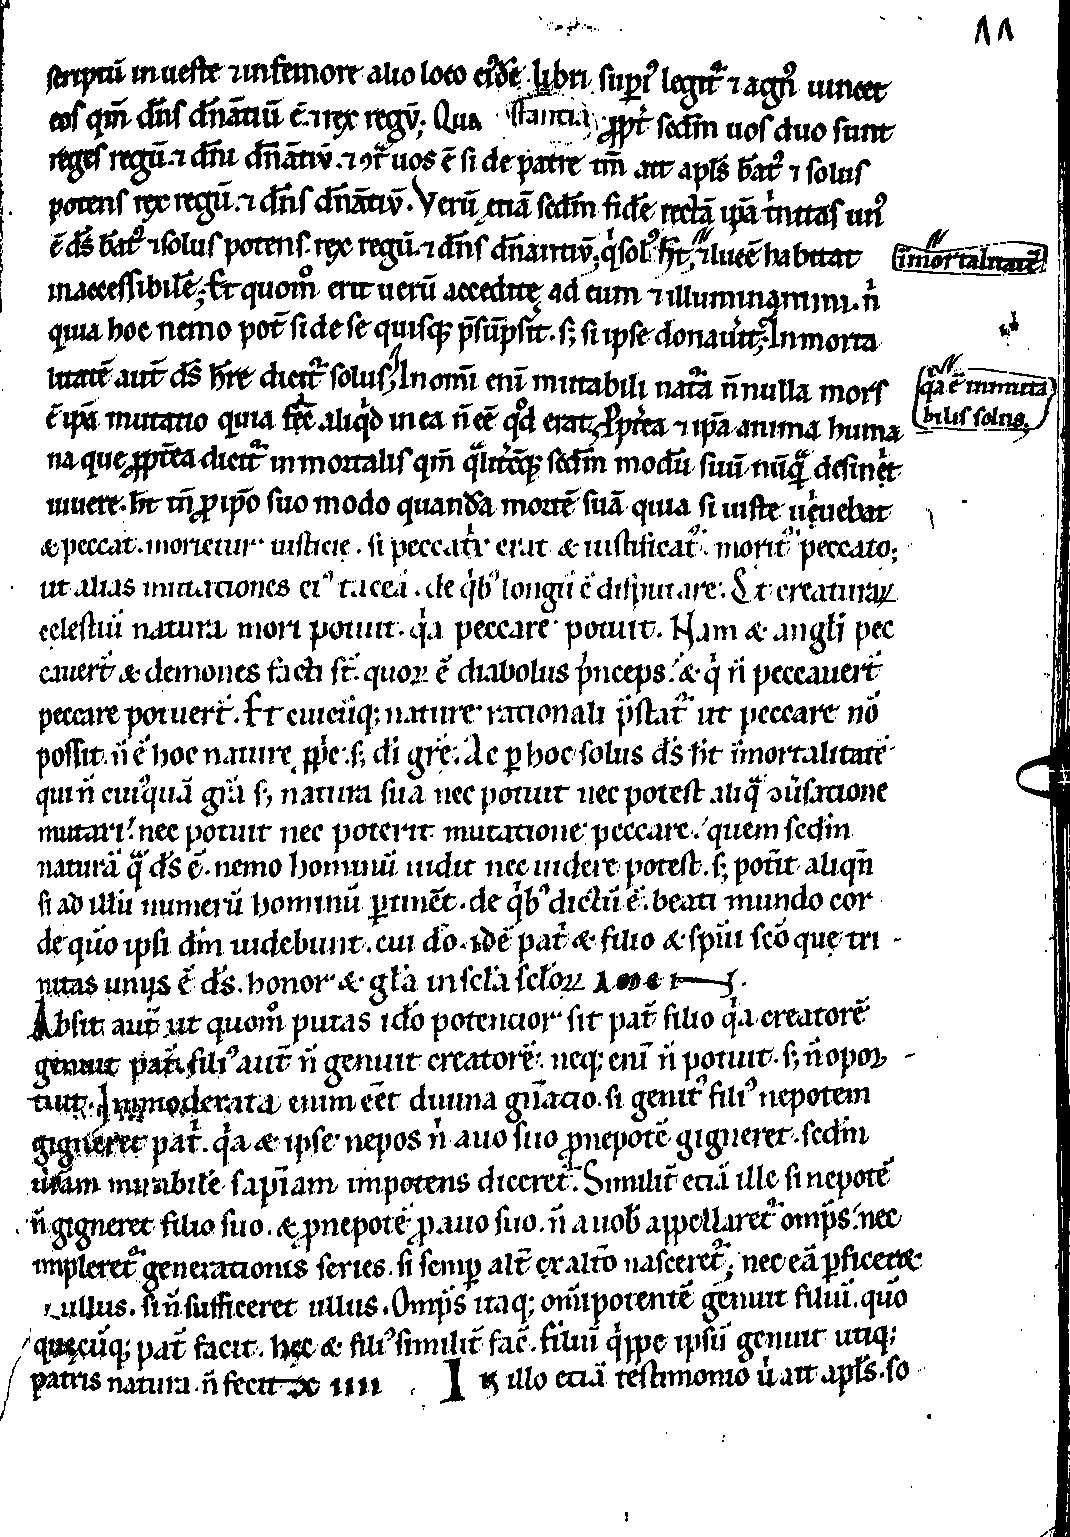 11
scriptū in ueste ⁊ in femore alio loco eiꝰdē libri supiꝰ legit᷑ ⁊ agnꝰ uincet
eos qm̄ dn̄s dn̄atiū ē. ⁊ rex regū; Qua ꝓpt̄ scdm̄ uos duo sunt
reges regū. ⁊ dn̄i dn̄atiū. ⁊ 9tͣ uos ē si de patre tm̄ ait apl̄s bat̄ꝰ ⁊ solus
potens rex regū. ⁊ dn̄s dn̄atiū. Verū etiā scdm̄ fidē rectā ipā trinitas unꝰ
ē ds̄ bat̄ꝰ ⁊ solus potens. rex regū. ⁊ dn̄s dn̄antiū; q̇ solꝰ ht̄, ⁊ lucē habitat
īmortalitatē.
inaccessibilē; Et quom̊ erit uerū accedite ad eum ⁊ illuminamini. n̄
quia hoc nemo pot̄ si de se quisqꝫ p̄sūpsit. sꝫ si ipse donauit; Inmorta
litatē aut̄ ds̄ hr̄e dicit᷑ solus; In om̄i eni mutabili natͣa n̄ nulla mors
qͣa ē inmuta
bilis solus.
ē ipā mutatio quia fec̄ aliqd in ea n̄ eē qd̄ erat. Ppr̄ea ⁊ ipā anima huma
na que ꝓpt̄ea dicit᷑ inmortalis qm̄ qͣlitcūqꝫ scdm̄ modū suū nūqͣ desinit
uiuere. ht̄ tn̄ ꝓ ipo suo modo quandā mortē suā quia si iuste uiuebat
& peccat. morietur iusticie. si peccatr̄ erat & iustificat᷑. morit᷑ peccato;
ut alias mutationes eiꝰ taceā. de qͥbꝰ longū ē disputare. Et creaturaꝝ
celestiū natura mori potuit. qͣa peccare potuit. Nam & angl̄i pec
cauer̄ & demones facti st̄. quoꝝ ē diabolus pͥnceps. & qͥ n̄ peccauer̄
peccare potuer̄. Et cuicūqꝫ nature rationali p̄stat᷑ ut peccare nō
possit. n̄ ē hoc naturę ꝓprie. sꝫ di grē. Ac ꝑ hoc solus ds̄ ht̄ īmortalitatē
qui n̄ cuiꝰquā gr̄a sꝫ natura sua nec potuit nec potest aliqͣ 9ūsatione
mutari. nec potuit nec poterit mutatione peccare. quem scdm̄
naturā qͣ ds̄ ē. nemo hominū uidit nec uidere potest. sꝫ potit aliqn̄
si ad illū numerū hominū ꝑtinet. de qͥbꝰ dictū ē. beati mundo cor
de quō ipsi dm̄ uidebunt. cui dō. idē pat̄ & filio & spiū scō quę tri -
nitas unus ē ds̄. honor & gl̄a in scl̄a scl̄oꝝ Amen.
Absit aut̄ ut quom̊ putas idō potentior sit pat̄ filio qͣa creatorē
genuit pat̄. filiꝰ aut̄ n̄ genuit creatorē. neqꝫ eni n̄ potuit. sꝫ n̄ opor -
tuit. Inmoderata enim eēt diuina gn̄atio. si genitꝰ filiꝰ nepotem
gigneret pat̄. qͣa & ipse nepos n̄ auo suo ꝓnepotē gigneret. scdm̄
ur̄am mirabilē sapiam impotens diceret᷑. Similit̄ etiā ille si nepotē
n̄ gigneret filio suo. & ꝓnepotē ꝓauo suo. n̄ auob̄ appellaret᷑ omp̄s. nec
impleret᷑ generationis series. si semꝑ alt̄ ex alt̄o nasceret᷑; nec eā ꝑficeret
ullus. si n̄ sufficeret ullus. Omp̄s itaqꝫ om̄ipotentē genuit filiū. quō
quęcūqꝫ pat̄ facit. hęc & filiꝰ similit̄ fac̄. filiū qͥppe ipsū genuit utiqꝫ
patris natura. n̄ fecit XIIII In illo etiā testimonio u̇ ait apl̄s. so